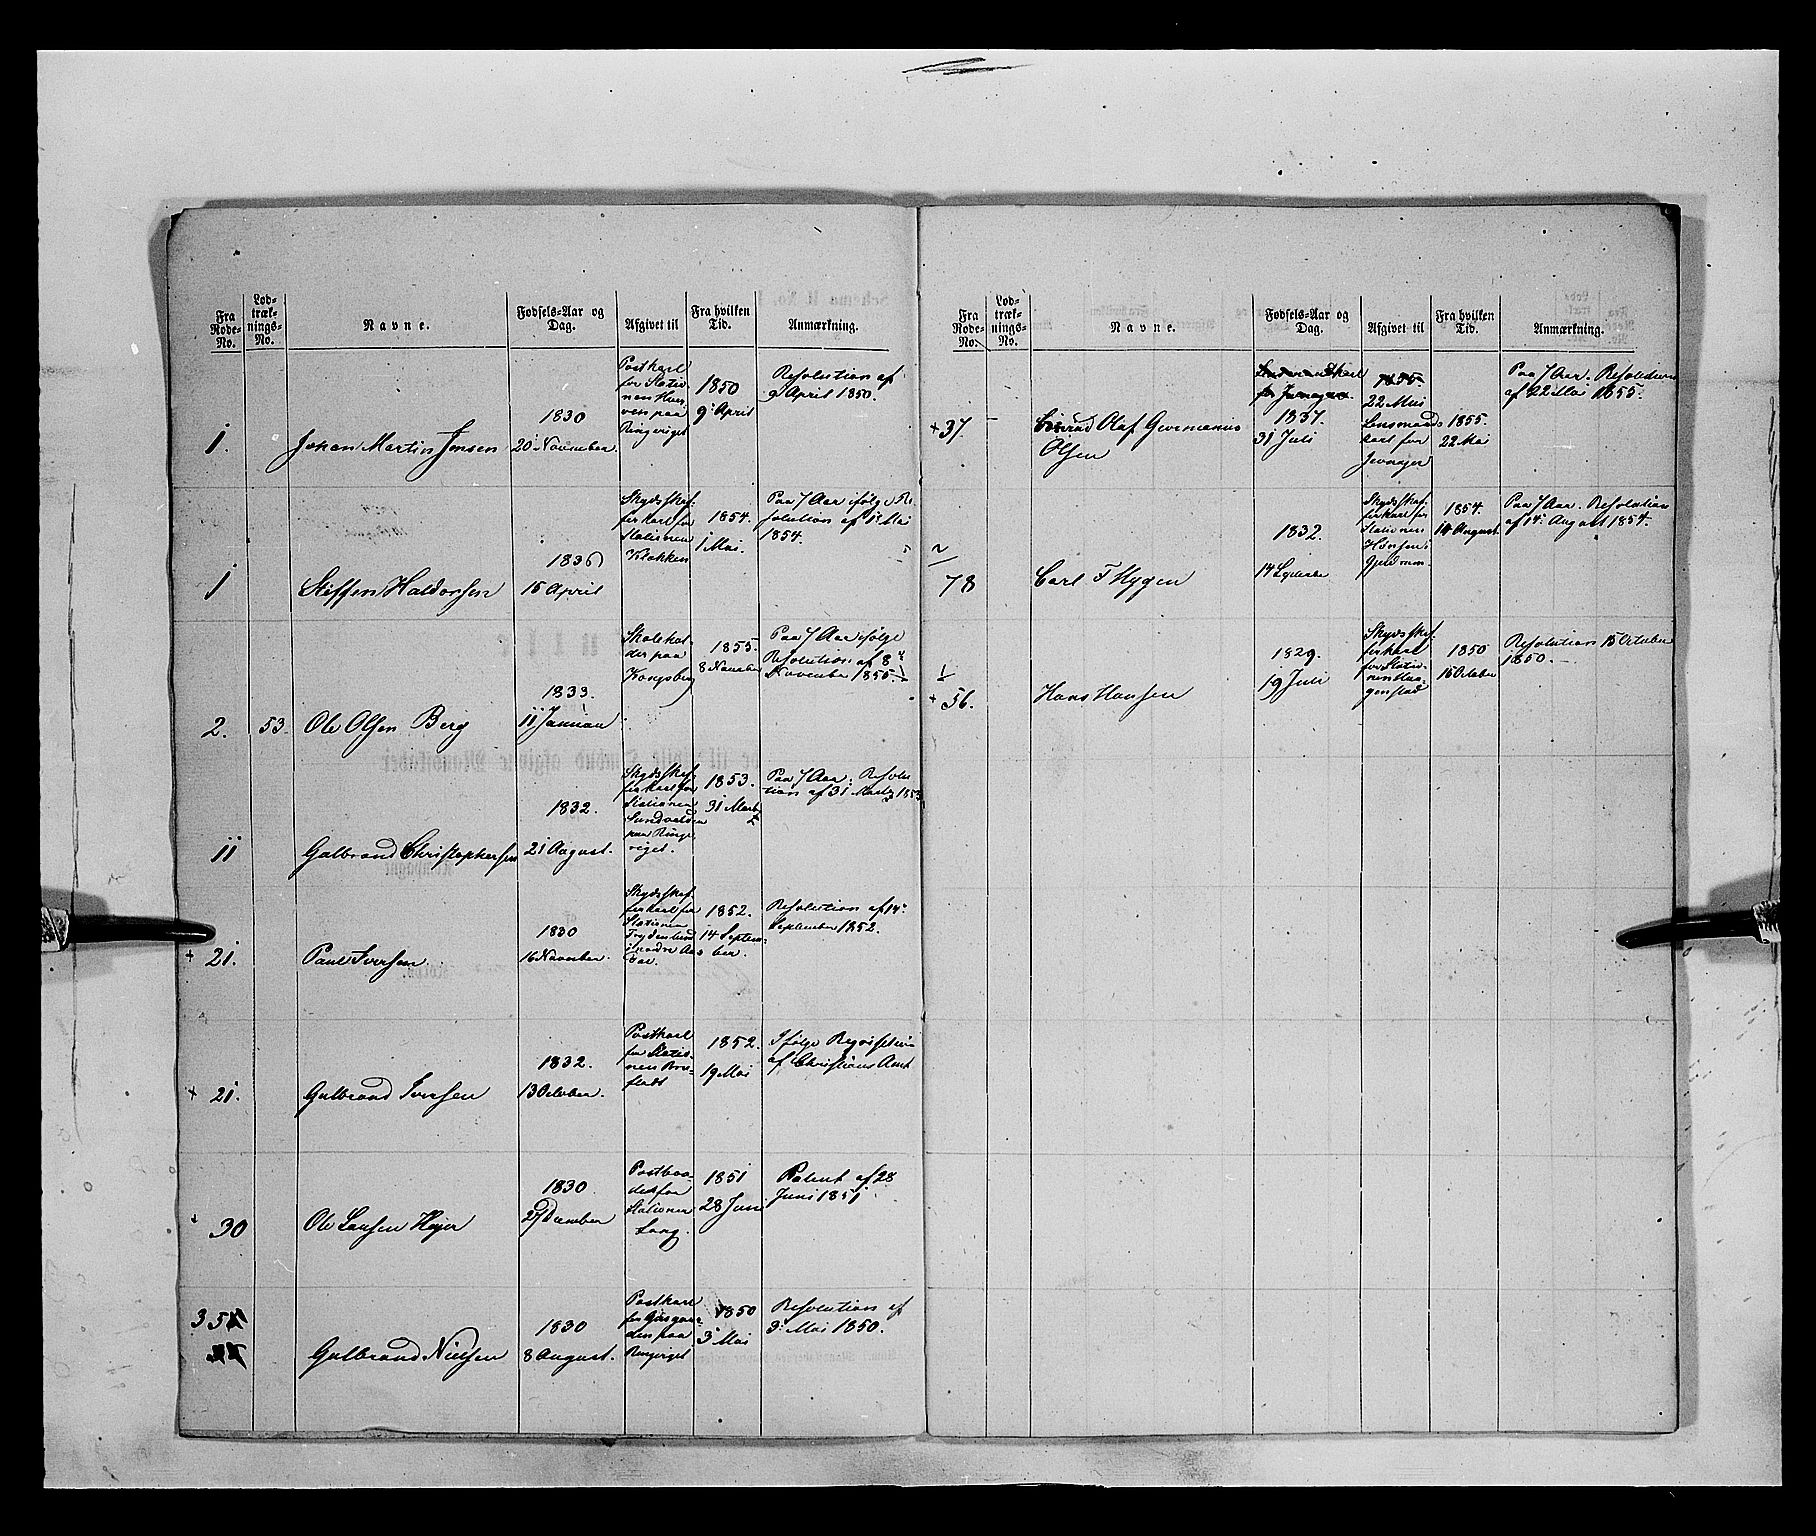 Fra Rode-No.
Lod-træk-nings-No.
Navne.
Fødsels-Aar og Dag.
Afgivet til
Fra hvilken Tid.
Anmærkning.
1.
Johan Martin Jensen
1830
20 November
Postkarl
for Statio-
nen
paa
Ringeriget
1850
9: April
Resolution af
9 April 1850.
1
Steffen Haldorsen
1836
15 April
Skydsskaf-
ferkarl for
Stationen
Klækken
1854.
1 Mai.
Paa 7 Aar ifølge Re-
solution af 1: Mai
1854.
2.
53.
Ole Olsen Berg
1833.
11 Januar
Skolehol-
der paa
Kongsberg
1855.
8 November
Paa 7 Aar ifølge
Resolution af 8:
November 1855.
11
Gulbrand Christophersen
1832.
21 August.
Skydsskaf-
ferkarl for
Stationen
Sundvolden
paa Ringe-
riget.
1853.
31 Marts
Paa 7 Aar. Resolu-
tion af 31 Marts 1853
+ 21.
Paul Iversen
1830
16 November
Skydsskaf-
ferkarl for
Stationen
Frydenlund
i nordre Aur-
dal.
1852.
14 Septem-
ber.
Resolution af 14:
September 1852.
+ 21.
Gulbrand Iversen
1832.
13 October.
Postkarl
for Statio-
nen
1852.
19 Mai
Ifølge Reqvisition
af Christians Amt
+ 30
Ole Larsen Højer
1830
27 December
Stationen
1851
28 Juni
Patent af 28
Juni 1851.
35
Gulbrand Nielsen
1830
8 August.
Postkarl
for
den paa
Ringeriget
1850
3 Mai
Resolution af
3: Mai 1850.
Fra Rode-No.
Lod-træk-nings-No.
Navne.
Fødsels-Aar og Dag.
Afgivet til
Fra hvilken Tid.
Anmærkning.
+ 37.
Olaf Germanus
Olsen
1837.
31 Juli
1855.
22 Mai
Lensmands-
karl for
Jevnager
1855.
22 Mai
Paa 7 Aar. Resolution
af 22 Mai 1855.
78
Carl F Hygen
1832.
14
Skydsskaf-
ferkarl for
Stationen
1854.
14 August.
Paa 7 Aar. Resolution
af 14: August 1854.
+ 56.
Hans Hansen
1829.
19 Juli
Skydsskaf-
ferkarl
for Statio-
nen Hau-
genstad
1850
15 October
Resolution 15 October
1850.